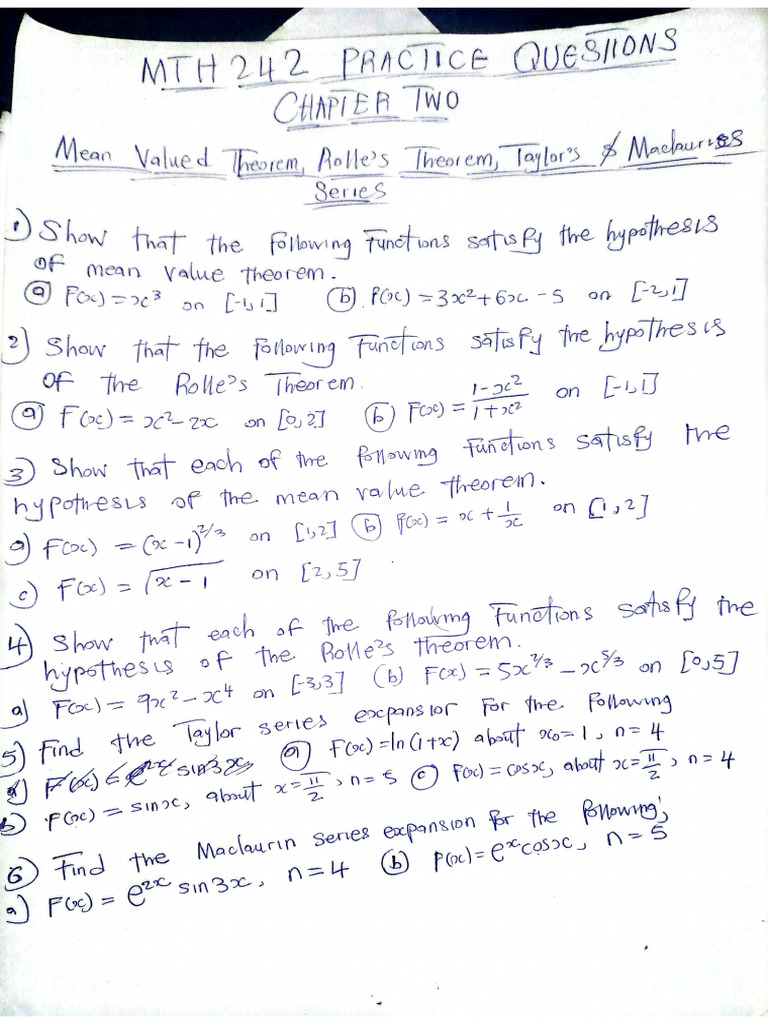 MTH 242 PRACTICE QUESTIONS
CHAPTER TWO
Mean Valued Theorem, Rolle's Theorem, Taylor's & Maclauries
Series
1) Show that the following functions satisfy the hypothesis
of mean value theorem.
(a) F(x) = x³ on [-1,1] (b) F(x) = 3x²+6x-5 on [-2,1]
2) Show that the following functions satisfy the hypothesis
of the Rolle's Theorem.
(a) F(x) = x²-2x on [0,2] (b) F(x) = (1-x²)/(1+x²) on [-1,1]
3) Show that each of the following functions satisfy the
hypothesis of the mean value theorem.
a) F(x) = (x-1)^(2/3) on [1,2] (b) F(x) = x + 1/x on [1,2]
c) F(x) = √(x-1) on [2,5]
4) Show that each of the following functions satisfy the
hypothesis of the Rolle's theorem.
a) F(x) = 9x²-x⁴ on [-3,3] (b) F(x) = 5x^(2/3) - x^(5/3) on [0,5]
5) Find the Taylor series expansion for the following
(a) F(x) = ln(1+x) about x₀=1, n=4
b) F(x) = sinx, about x=π/2, n=5 (c) F(x) = cosx, about x=π/2, n=4
6) Find the Maclaurin series expansion for the following;
a) F(x) = e^(2x) sin3x, n=4 (b) F(x) = e^x cosx, n=5